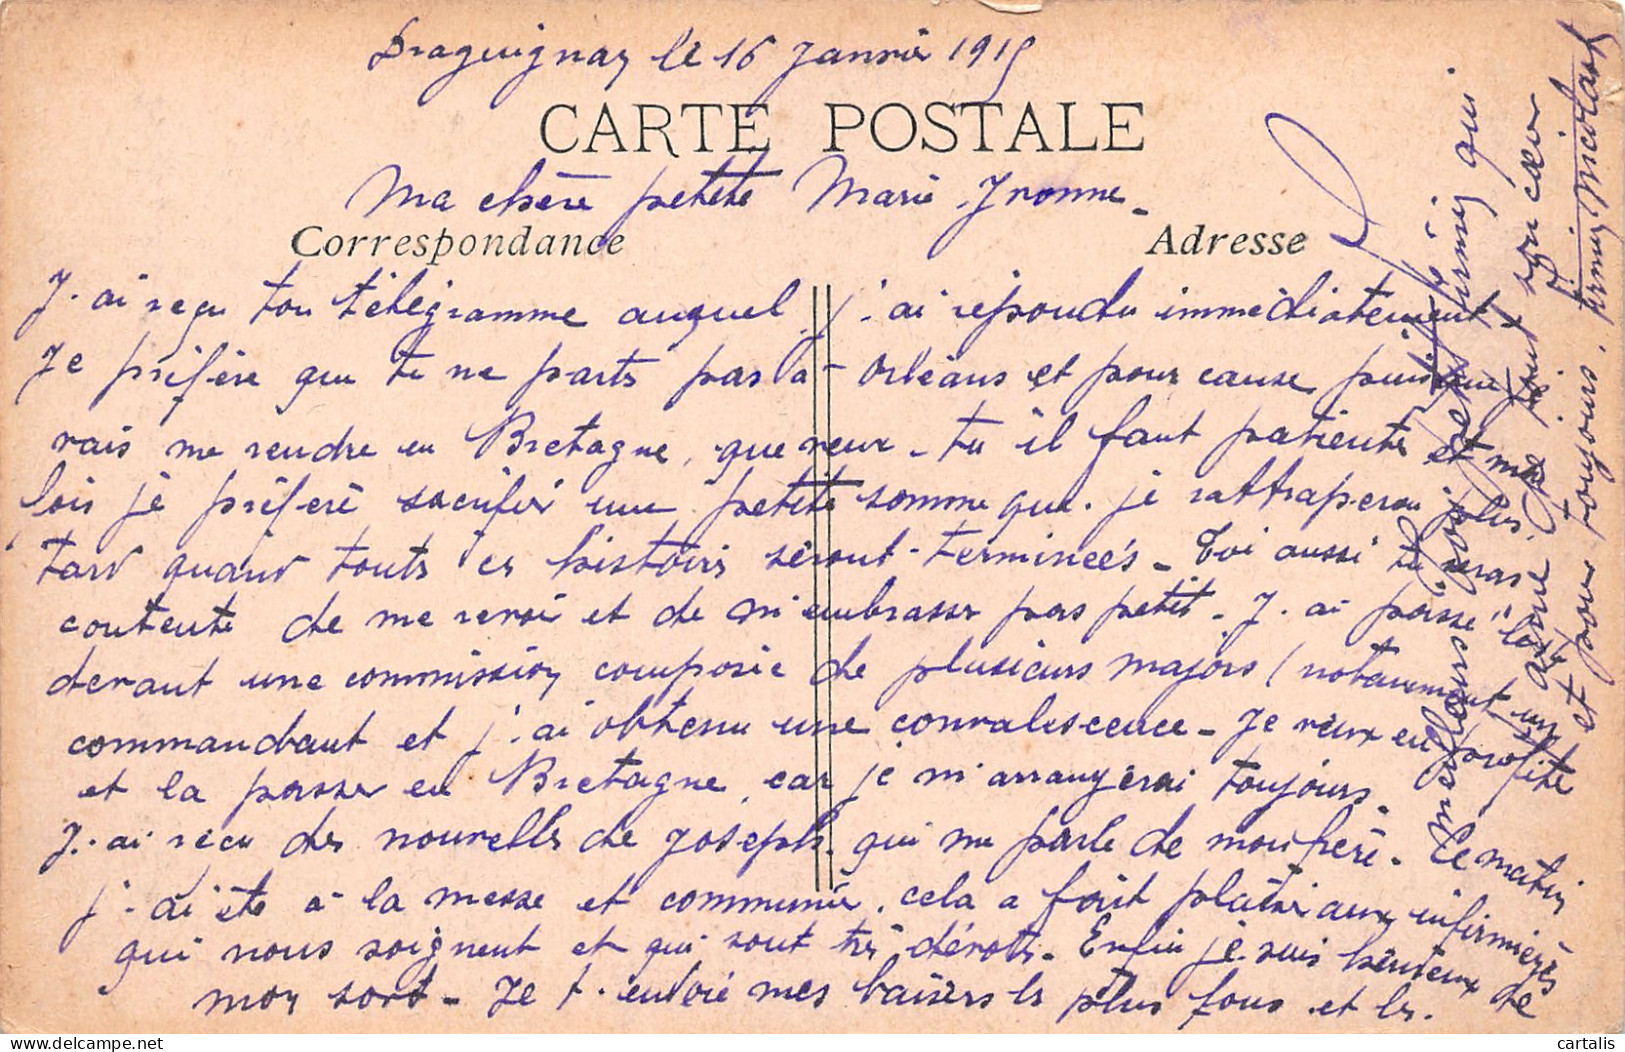 Draguignan le 16 Janvier 1915
CARTE POSTALE
Ma chère petite Marie-Yvonne.
Correspondance
Adresse
J'ai reçu ton télégramme auquel j'ai répondu immédiatement.
Je préfère que tu ne parts pas à Orléans et pour cause, puisque
rais me rendre en Bretagne, que veux-tu il faut patienter et
fois je préfère sacrifier une petite somme que je rattraperai plus
tard quand touts ces histoires seront terminées. Toi aussi tu seras
contente de me revoir et de m'embrasser pas petit. J'ai passé
devant une commission composée de plusieurs majors (notamment un
commandant et j'ai obtenu une convalescence. Je veux en profiter
et la passer en Bretagne, car je m'arrangerai toujours.
J'ai reçu des nouvelles de Joseph qui me parle de mon frère. Ce matin
j'ai été à la messe et communié, cela a fait plaisir aux infirmières
qui nous soignent et qui sont très dévotes. Enfin je suis heureux de
mon sort. Je t'envoie mes baisers les plus fous et les
meilleurs. Ton petit Firmin qui
t'aime de tout son cœur
et pour toujours. Firmin Nicolas
cartalis
delcampe.net